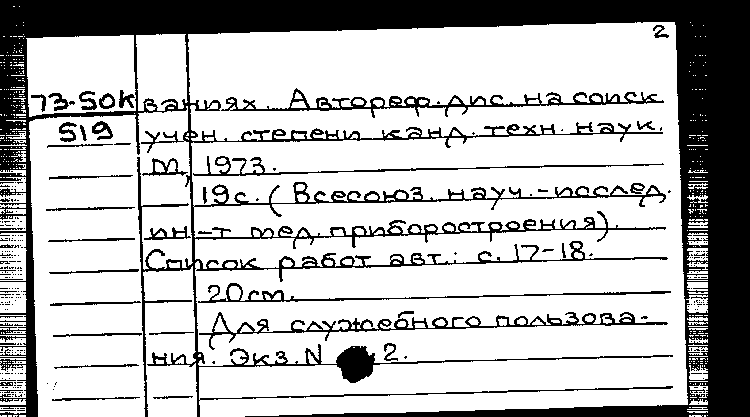 2
73-5ОК ваниях. Автореф. дис. на соиск
519 учен. степени канд. техн. наук.
М, 1973.
19с. (Всесоюз. науч.-исслед.
ин-т мед. приборостроения).
Список работ авт.: с. 17-18.
20см.
Для служебного пользова-
ния. Экз. N 2.